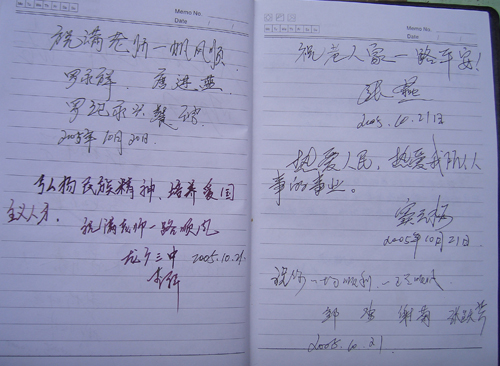 Memo No.
Date
祝满老师一帆风顺
2005年10月20日.
弘扬民族精神、培养爱国
主义人才.
祝满老师一路顺风
2005.10.21.
Memo No.
Date
祝老人家一路平安!
张燕
2005.10.21日
热爱人民,热爱我所从
事的事业。
2005年10月21日
祝你一切顺利,一路顺风
2005.10.21